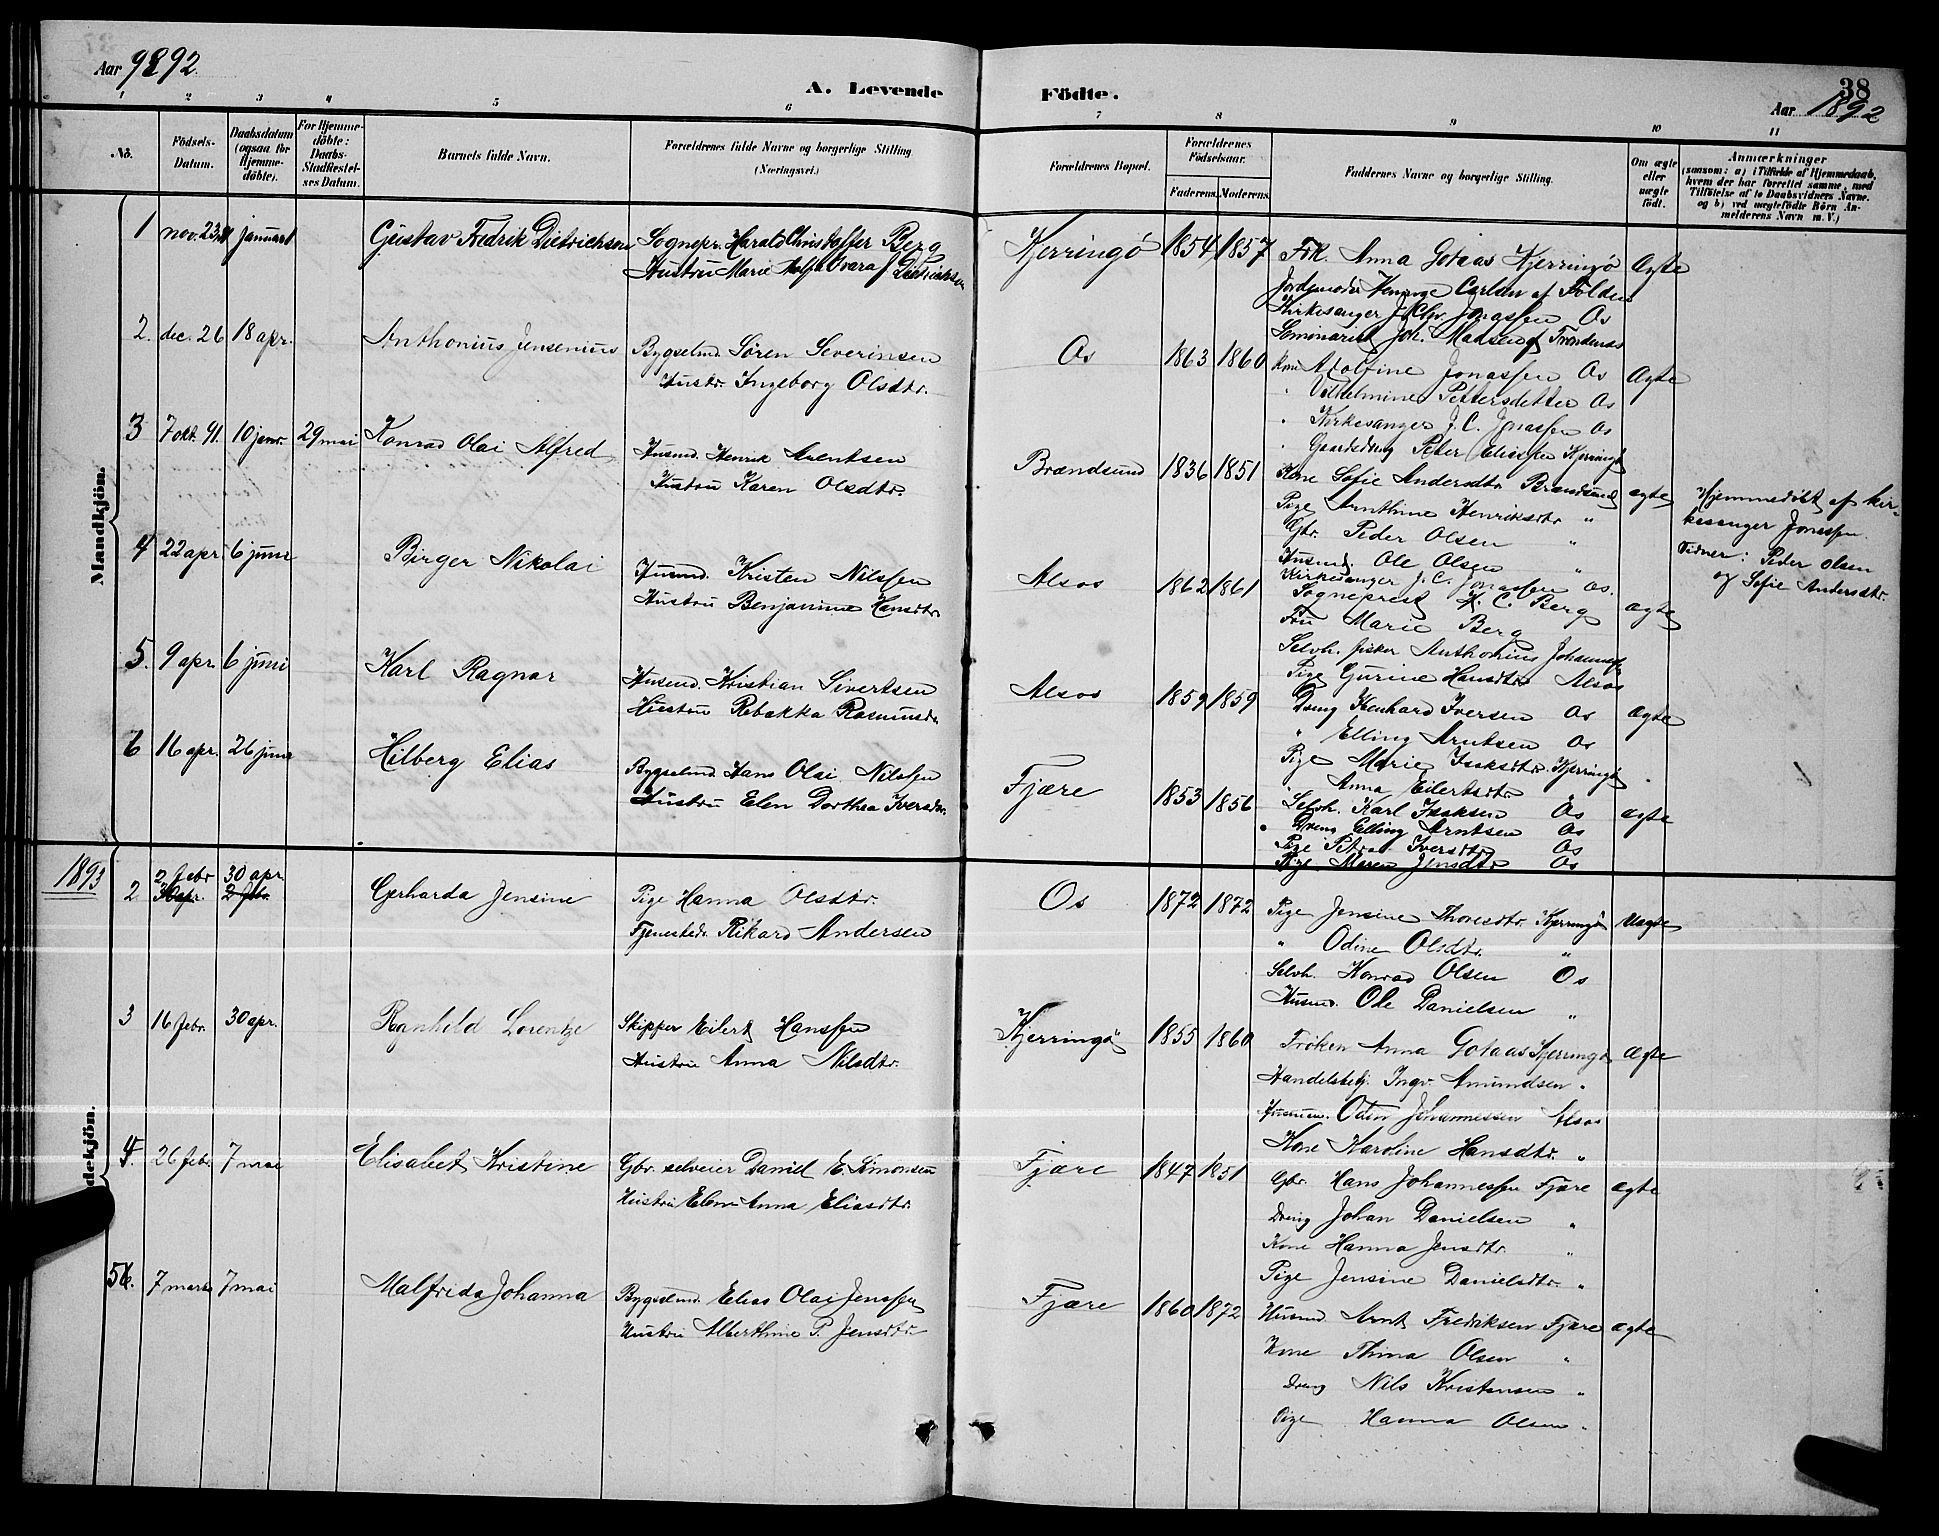 Aar 9892.
A. Levende Födte.
38
Aar 1892
1 2 3 4 5 6 7 8 9 10 11
No.
Födsels-Datum.
Daabsdatum (ogsaa for Hjemme-döbte).
For Hjemme-döbte: Daabs-Stadfæstel-ses Datum.
Barnets fulde Navn.
Forældrenes fulde Navne og borgerlige Stilling (Næringsvei.)
Forældrenes Bopæl.
Forældrenes Födselsaar.
Faderens. Moderens.
Faddernes Navne og borgerlige Stilling.
Om ægte eller uægte födt.
Anmærkninger
(saasom: a) i Tilfælde af Hjemmedaab, hvem der har forrettet samme, med Tilföielse af to Daabsvidners Navne. og b) ved uægtefödte Börn An-melderens Navn m. V.)
Mandkjön.
1 nov. 23 januar Gustav Fredrik Dietrichson
Sognepr. Harald Christoffer Berg
Hustru Marie
Kjerringö 1854 1857
Frk. Anna Gotaas Kjerringö Ægte
Carlsen af Folden
Kirkesanger J. Chr. Jonassen Os
Seminarist Joh. Madsen af Trondenes
2. dec. 26 18 apr. Anthonius Jensenius
Bygselmd. Sören Severinsen
Hustr. Ingeborg Olsdtr.
Os 1863 1860
Kone Adolfine Jonassen Os Ægte
" Vilhelmine Pettersdatter Os
" Kirkesanger J. C. Jonassen Os
" Peter Eliassen Kjerringö
3 7 okt. 91. 10 janr. 29 mai Konrad Olai Alfred
Husmd. Henrik Arentsen
Hustru Karen Olsdtr.
Brændsund 1836 1851
Kone Sofie Andersdtr Brændsund ægte
Pige Arnthine Henriksdtr "
Gbr. Peder Olsen "
Husmd. Ole Olsen "
Hjemmedöbt af kir-
kesanger Jonassen.
Vidner: Peder Olsen
og Sofie Andersdtr.
4 22 apr. 6 juni Birger Nikolai
Husmd. Kristen Nilssen
Hustru Benjamine Hansdtr.
Alsos 1862 1861
Kirkesanger J. C. Jonassen Os.
Sogneprest H. C. Berg ægte
Fru Marie Berg
Selvh. fisker Anthonius Johannes
Pige Gurine Hansdtr Alsos
5. 9 apr. 6 juni Karl Ragnar
Husmd. Kristian Sivertsen
Hustru Rebekka Rasmusdr
Alsos 1859 1859
Dreng Kenhard Iversen Os ægte
" Elling Arntsen Os
Pige Marie Isaksdtr. Kjerringö
" Anna Eilertsdtr.
6 16 apr. 26 juni Hilberg Elias
Bygselmd Hans Olai Nilssen
Hustru Elen Dorthea Iversdtr.
Fjære 1853 1856
Selvh. Karl Isaksen Os ægte
Dreng Elling Arntsen Os
Pige Petra Iversdtr Os
Pige Maren Jensdtr Os
1893
2 2 febr 30 apr.
30 apr. 2 febr.
Gerharda Jensine
Pige Hanna Olsdtr.
Tjenestedr. Rikard Andersen
Os 1872 1872
Pige Jensine Thoresdtr. Kjerringö Uægte
" Odine Olsdtr. "
Selvh. Konrad Olsen Os
Husmd. Ole Danielsen "
3 16 febr. 30 apr. Ragnhild Lorentze
Skipper Eilert Hanssen
Hustru Anna Nilsdtr.
Kjerringö 1855 1860
Fröken Anna Gotaas Kjerringö Ægte
Handelsbetj. Ingv. Amundsen "
Husmd. Odin Johannessen Alsos
Kone Karoline Hansdtr. "
dekjön.
4. 26 febr. 7 mai Elisabet Kristine
Gbr. selveier Daniel E. Simonsen
Hustru Elen Anna Eliasdtr.
Fjære 1847 1851
Gbr. Hans Johannessen Fjære ægte
Dreng Johan Danielsen "
Kone Hanna Jensdtr. "
Pige Jensine Danielsdtr. "
56. 7 marts 7 mai Malfrida Johanna
Bygselmd. Elias Olai Jenssen
Hustru Alberthine P. Jensdtr
Fjære 1860 1872
Husmd Arnt Fredriksen Fjære ægte
Kone Thina Olsen "
Dreng Nils Kristensen "
Pige Hanna Olsen "